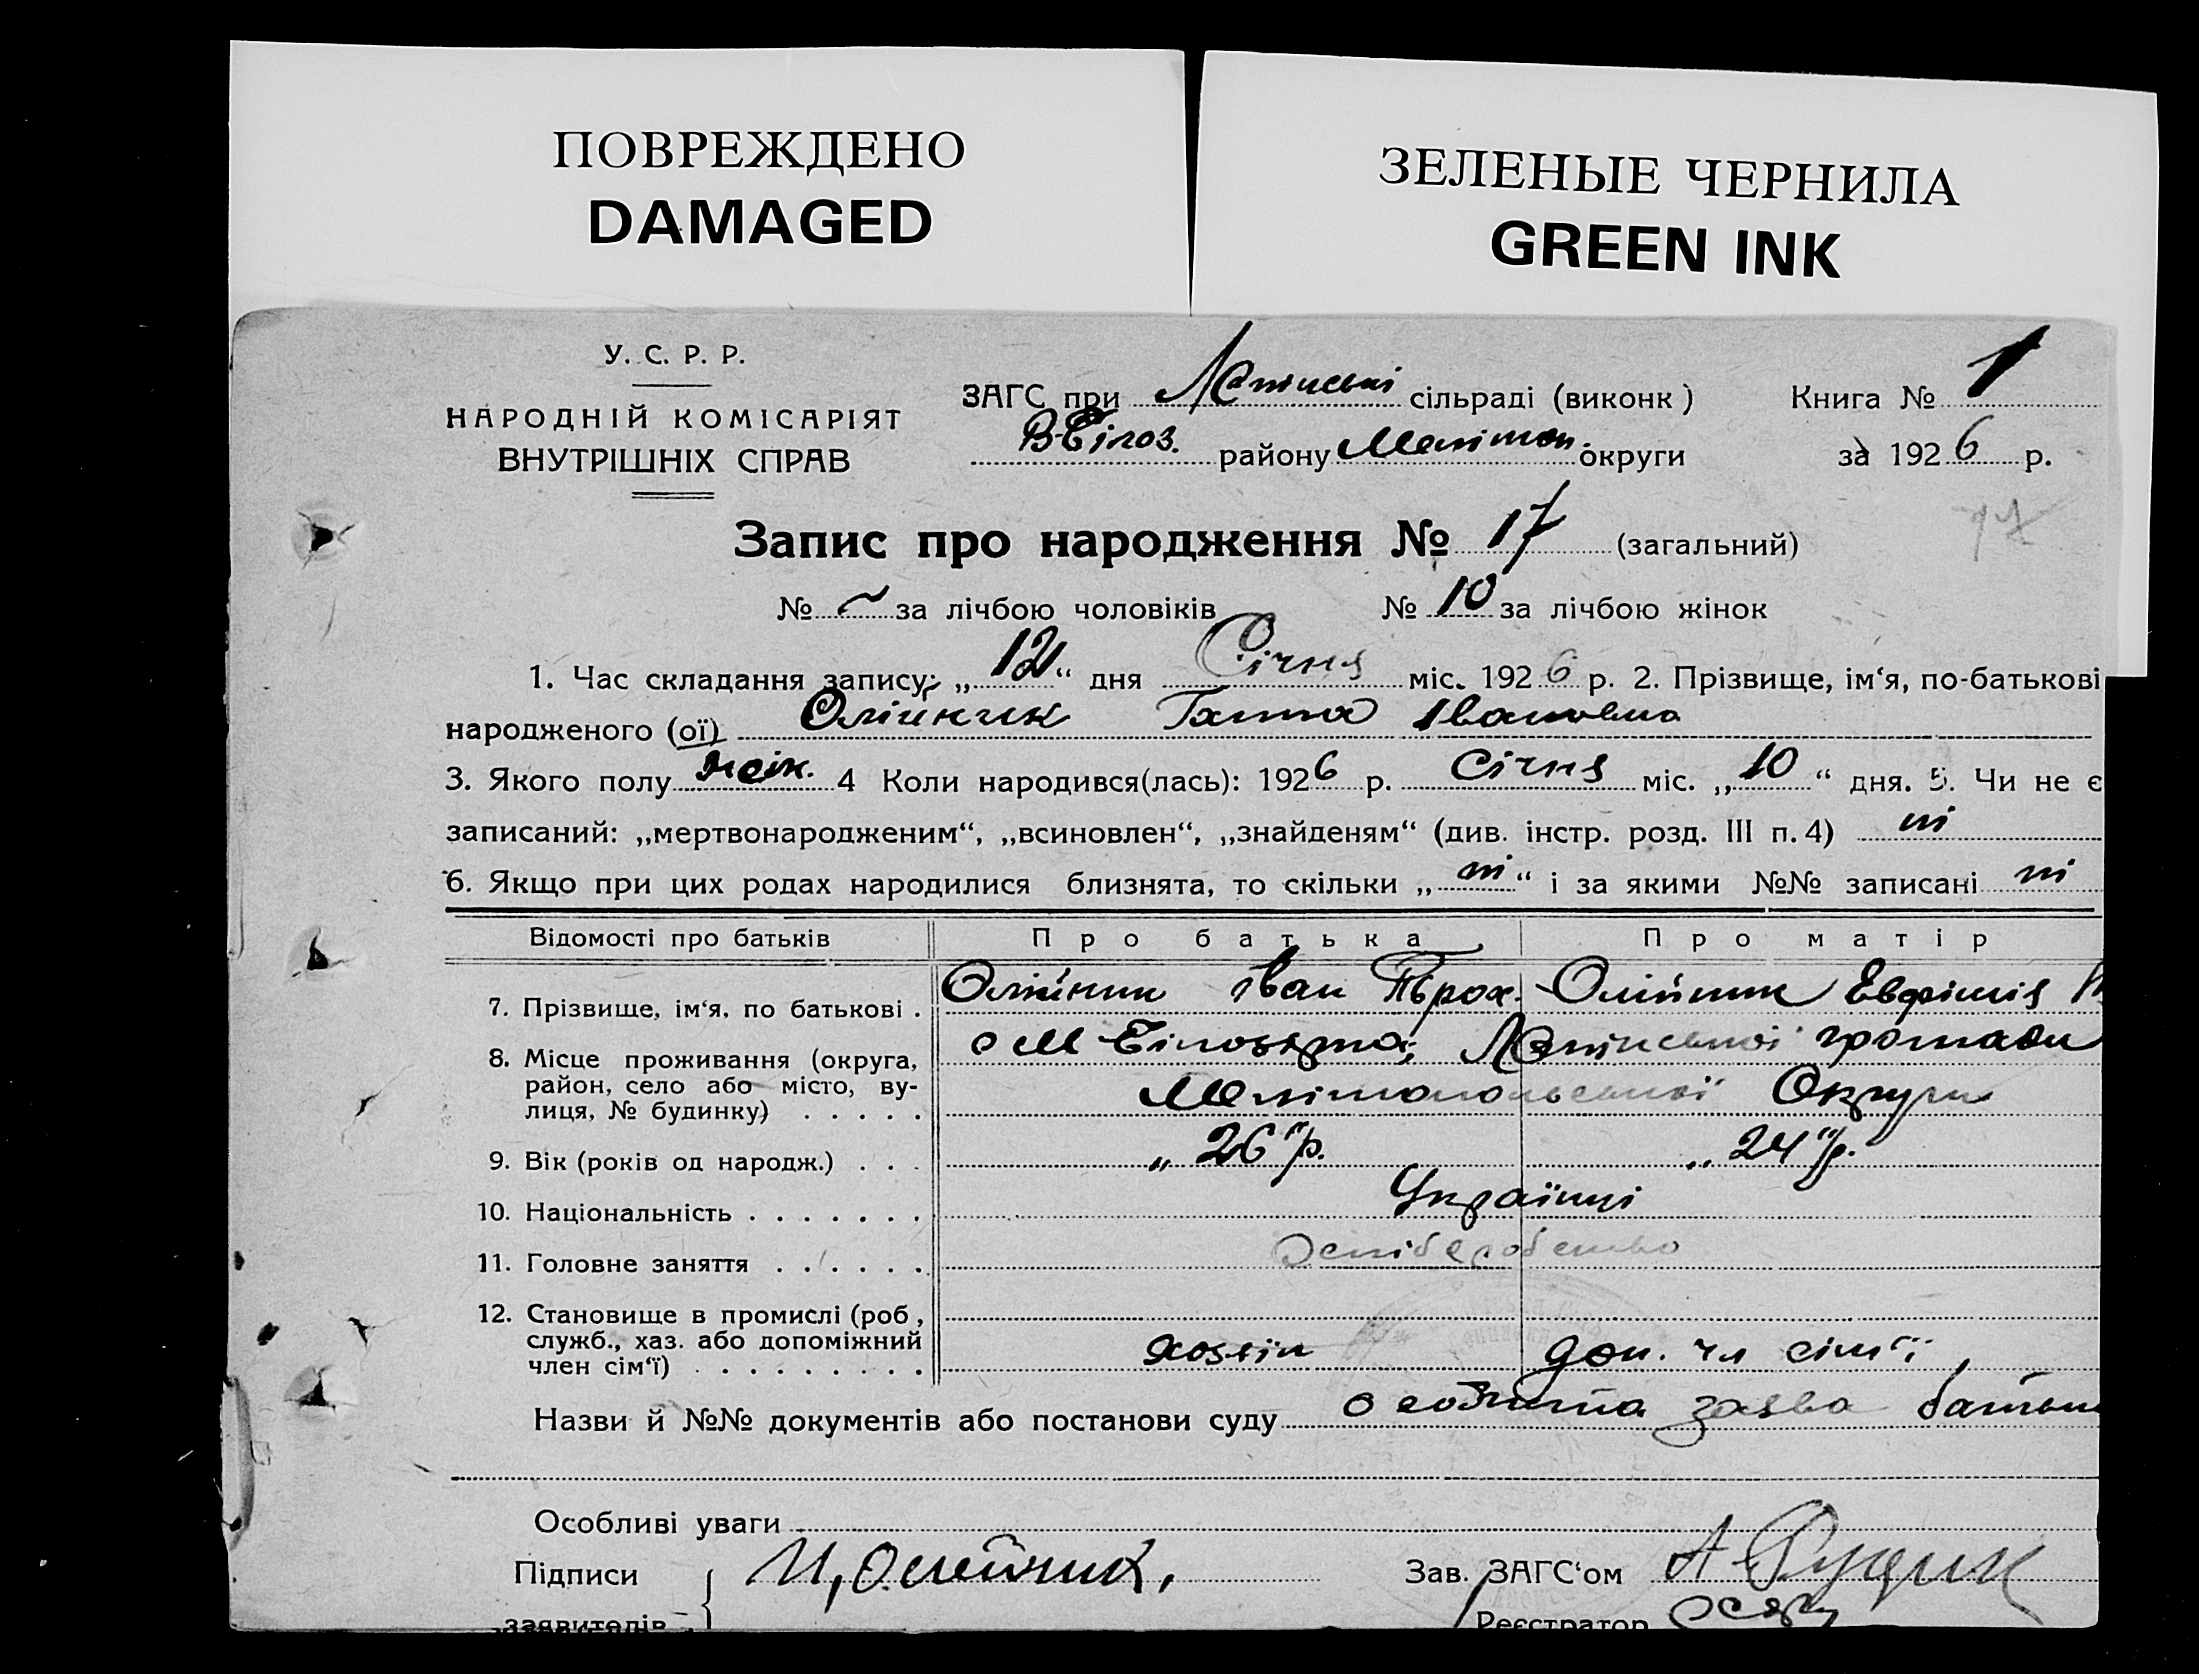 ПОВРЕЖДЕНО
DAMAGED
ЗЕЛЕНЫЕ ЧЕРНИЛА
GREEN INK
У. С. Р. Р.
НАРОДНІЙ КОМІСАРІЯТ
ВНУТРІШНІХ СПРАВ
ЗАГС при сільраді (виконк)
В-Білоз. району Мелітоп. округи
Книга № 1
за 1926 р.
Запис про народження № 17 (загальний)
17
№ – за лічбою чоловіків № 10 за лічбою жінок
1. Час складання запису: „12“ дня Січня міс. 1926 р. 2. Прізвище, ім‘я, по-батькові
народженого (ої) Олійник Ганна Івановна
3. Якого полу жін. 4 Коли народився(лась): 1926 р. Січня міс. „10“ дня. 5. Чи не є
записаний: „мертвонародженим“, „всиновлен“, „знайденям“ (див. інстр. розд. III п. 4) ні
6. Якщо при цих родах народилися близнята, то скільки „ні“ і за якими №№ записані ні
Відомості про батьків Про батька Про матір
7. Прізвище, ім‘я, по батькові . Олійник Іван Олійник Евфімія
8. Місце проживання (округа, громади
район, село або місто, ву-
лиця, № будинку) . . . . . Мелітопольської Округи
9. Вік (років од народж.) . . . „26“ р. „24“ р.
10. Національність . . . . . . . Українці
11. Головне заняття . . . . . .
12. Становище в промислі (роб.,
служб., хаз. або допоміжний
член сім‘ї) . . . . . . . . хозяїн доп. чл сім‘ї
Назви й №№ документів або постанови суду особиста заява
Особливі уваги
Підписи И, Олейник, Зав. ЗАГС‘ом
заявителів Реєстратор